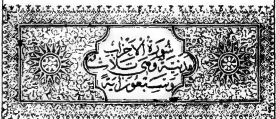 سورة الأحزاب
مدنية وهي ثلاث
وسبعون آية